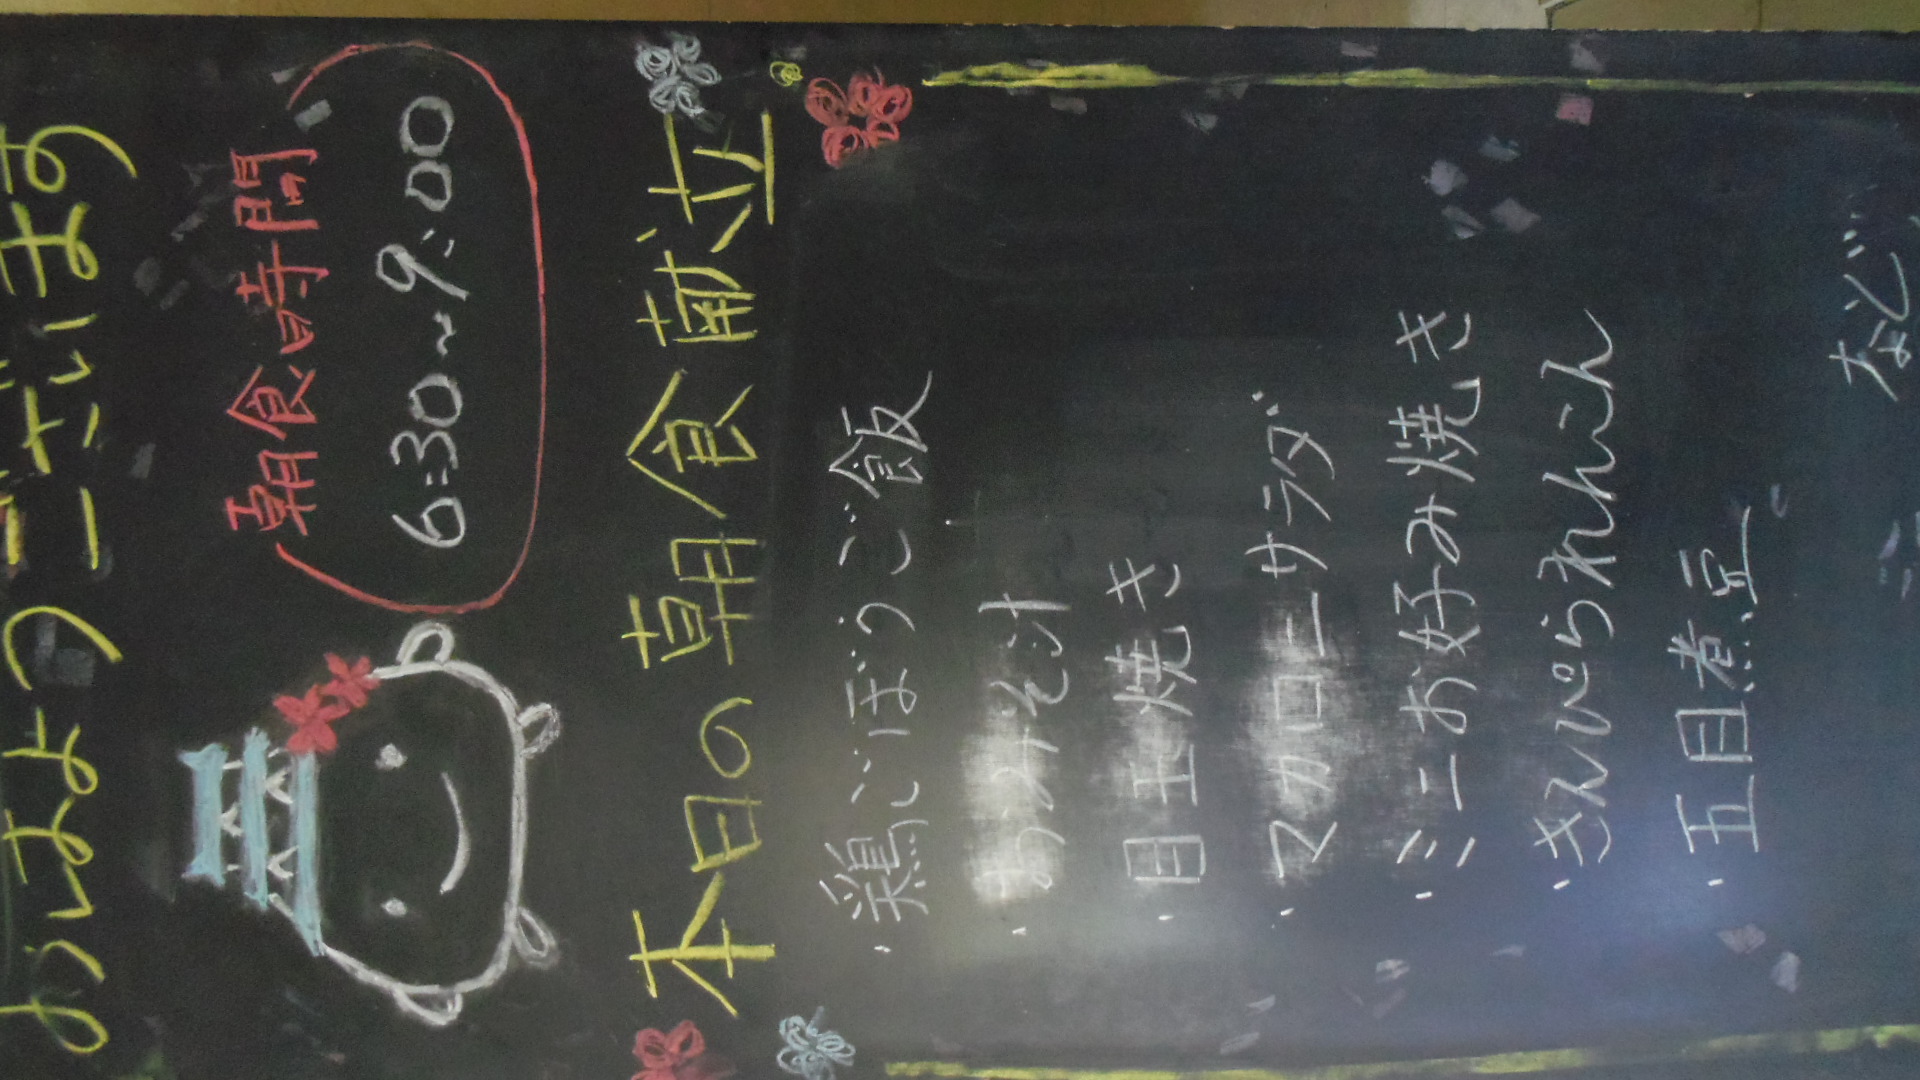 おはようございます
朝食時間
6:30～9:00
本日の朝食献立
・鶏ごぼうご飯
・おみそ汁
・目玉焼き
・マカロニサラダ
・ミニお好み焼き
・きんぴられんこん
・五目煮豆
など